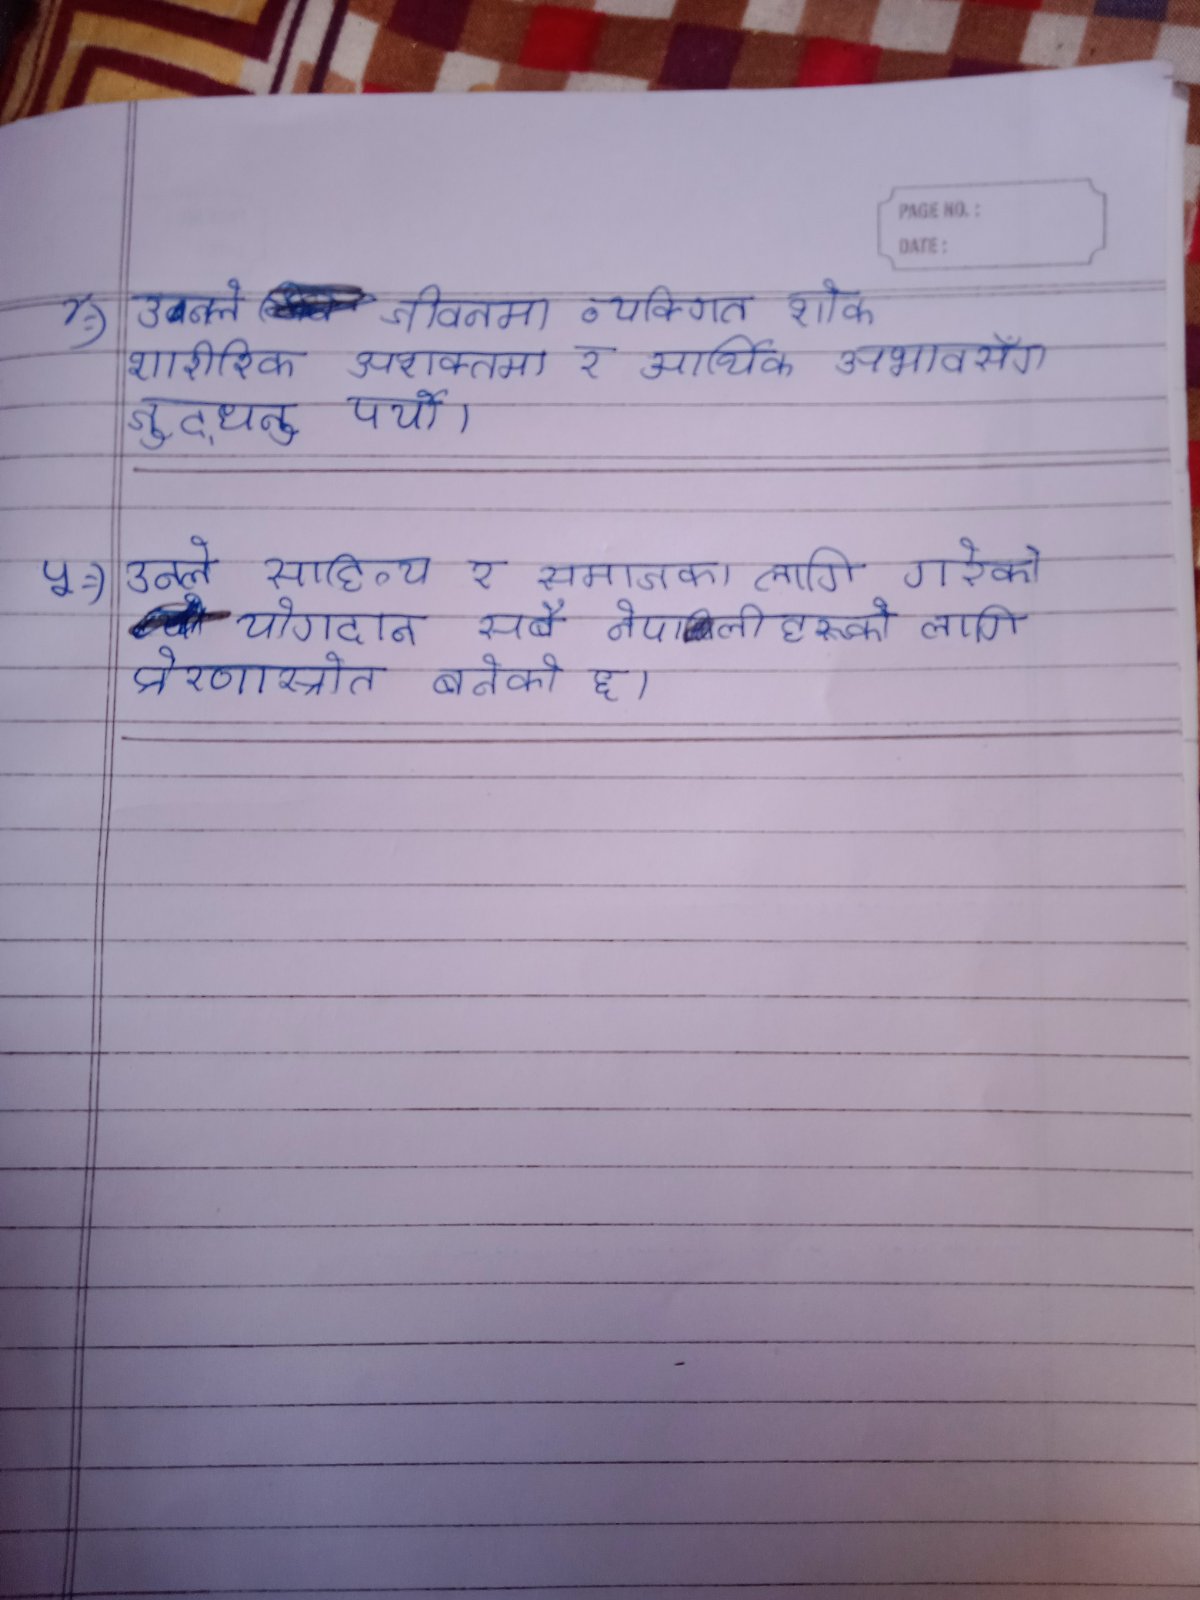 PAGE NO. :
DATE :
४=) उनले जीवनमा व्यक्गित शोक
शारीरिक अशक्तमा र आर्थिक अभावसँग
जुद्धनु पर्यो।
५=) उनले साहित्य र समाजका लागि गरेको
योगदान सबै नेपाली हरूको लागि
प्रेरणास्रोत बनेको छ।